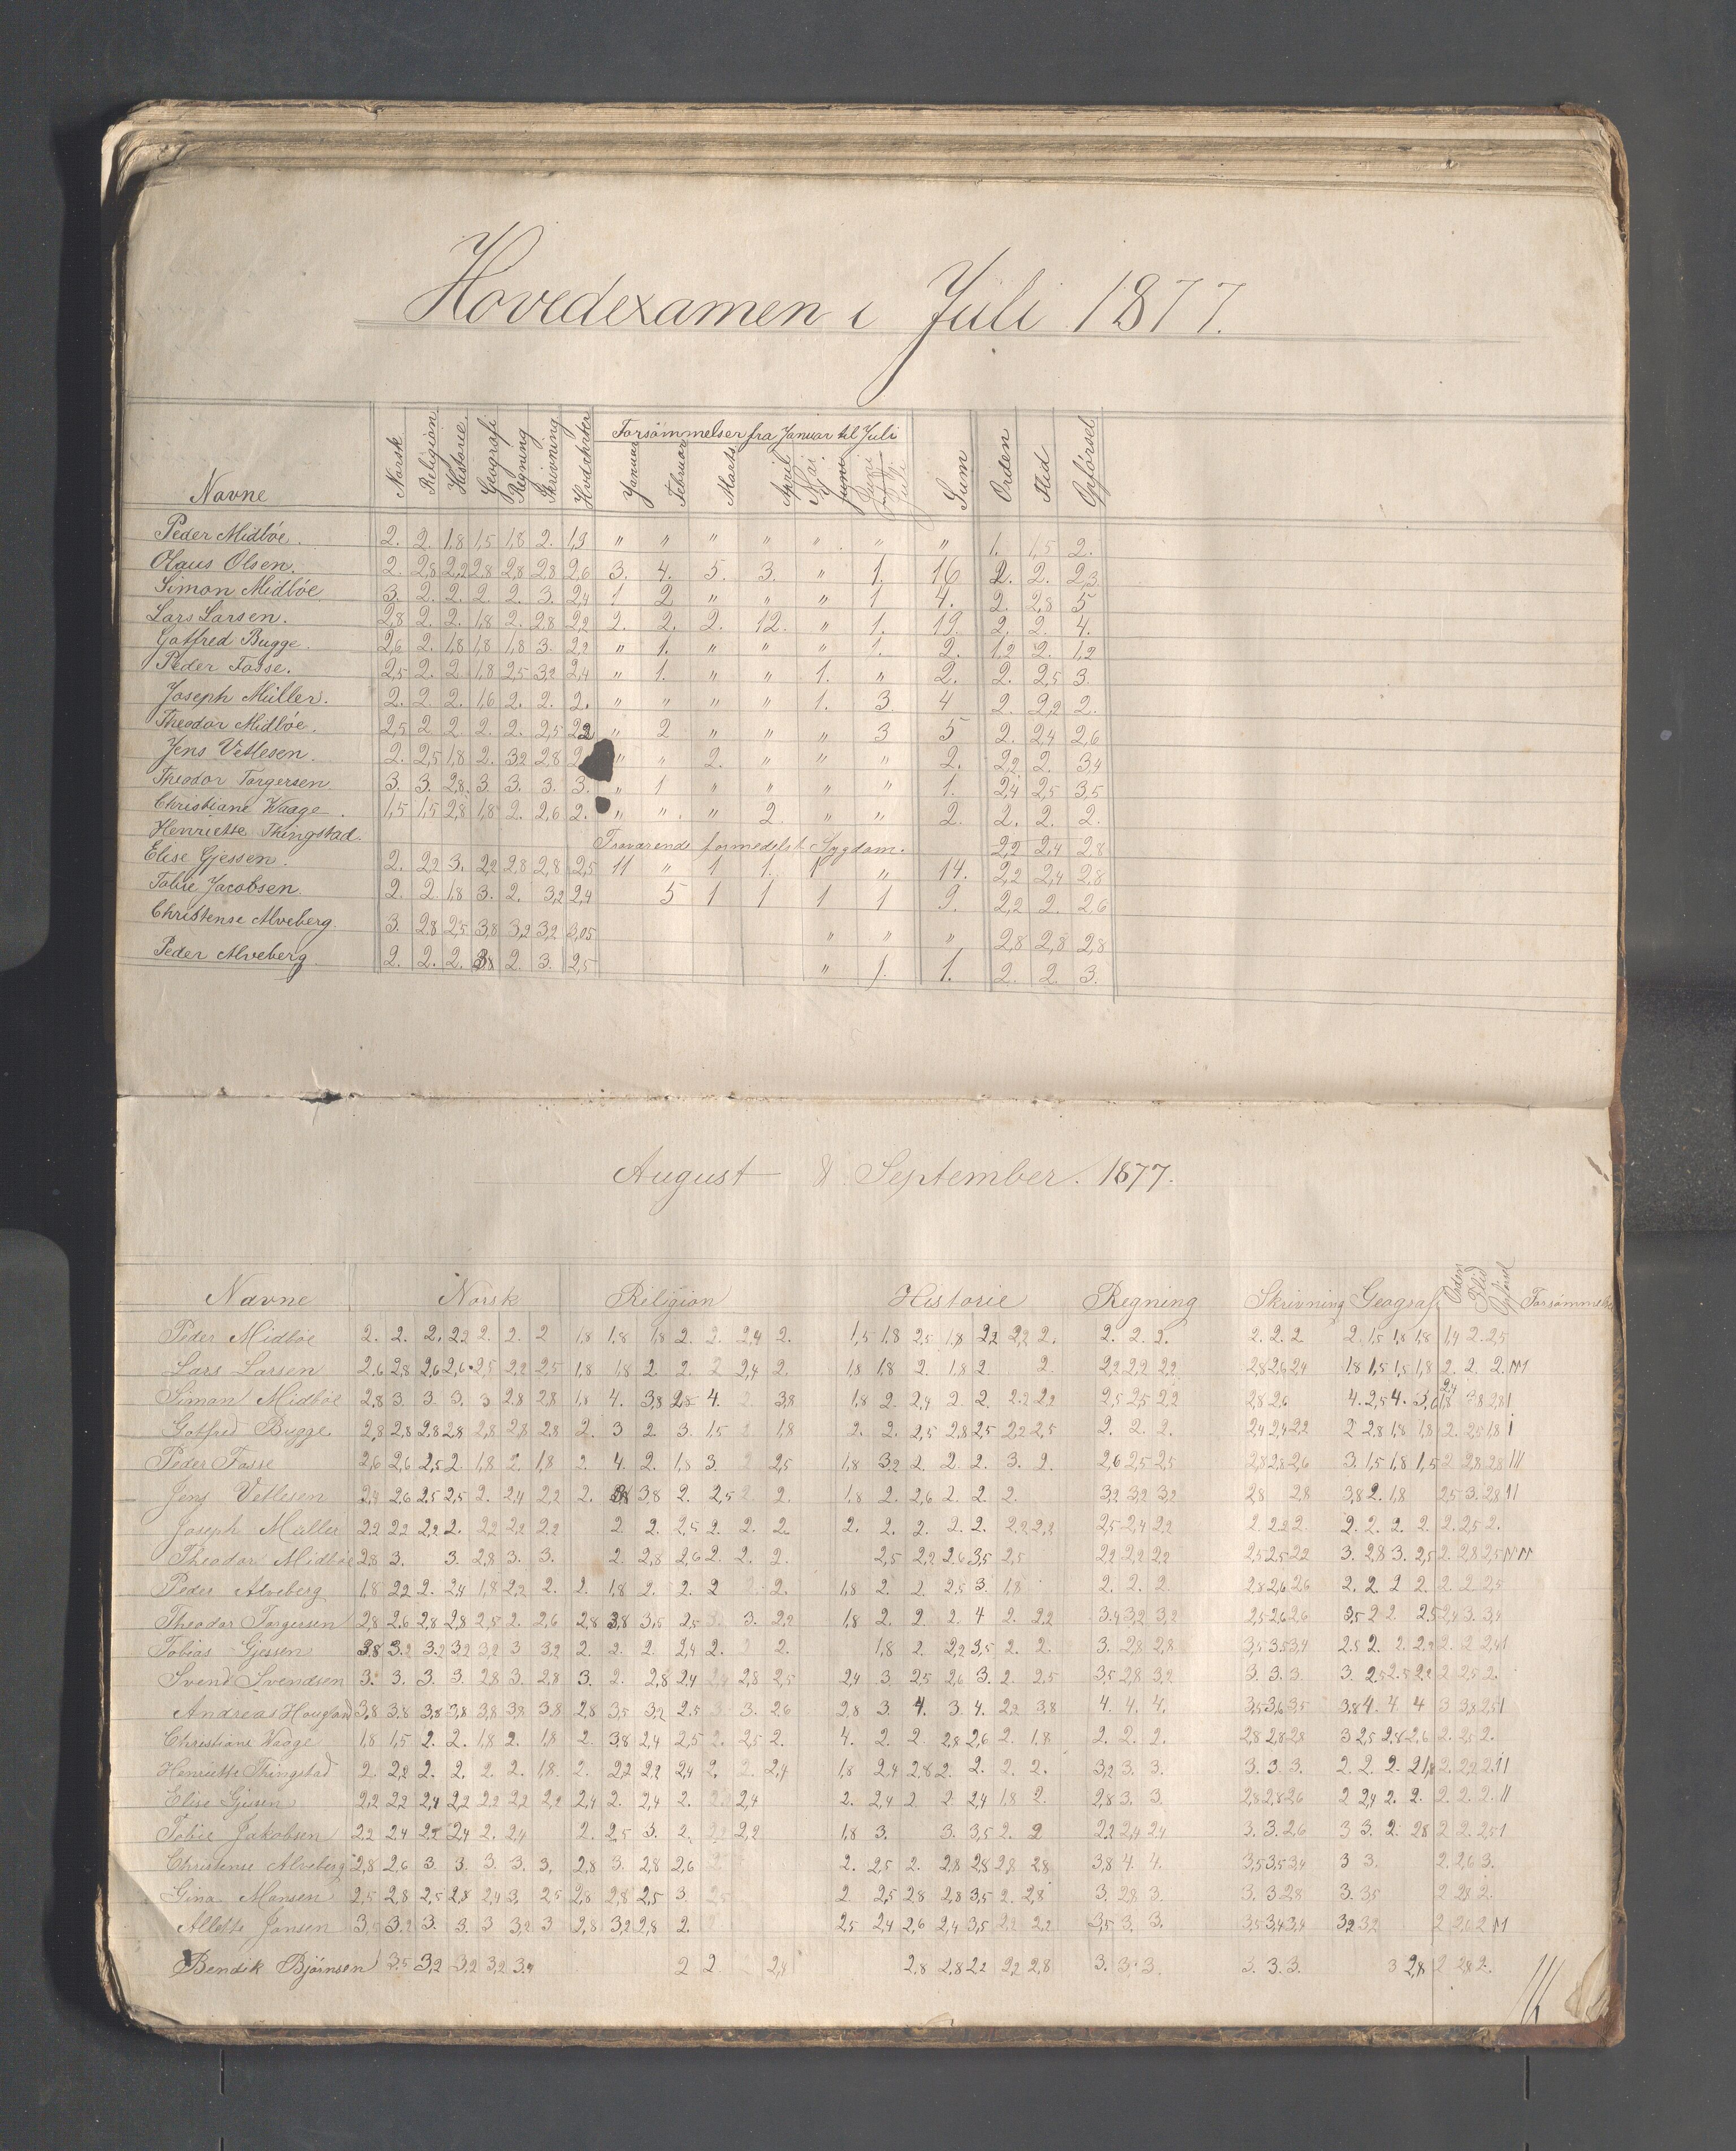 Hovedexamen i Juli 1877.
Navne Norsk Religion Historie Geografi Regning Skrivning Hvdchrkter Forsömmelser fra Januar til Juli Januar Februar Marts April Mai Juni Juli Sum Orden Flid Opförsel
Peder Midböe. 2. 2. 1,8 1,5 1,8 2. 1,9 " " " " " " " 1. 1,5 2.
Olaus Olsen. 2. 2,8 2,2 2,8 2,8 2,8 2,6 3. 4. 5. 3. " 1. 16 2. 2. 2,3
Simon Midböe 3. 2. 2. 2. 2. 3. 2,4 1 2 " " " 1 4. 2. 2,8 5
Lars Larsen. 2,8 2. 2. 1,8 2. 2,8 2,2 2. 2. 2. 12. " 1. 19. 2. 2. 4.
Gotfred Bugge. 2,6 2. 1,8 1,8 1,8 3. 2,2 " 1. " " " 1. 2. 1,2 2. 1,2
Peder Fasse. 2,5 2. 2. 1,8 2,5 3,2 2,4 " 1. " " 1. " 2. 2. 2,5 3.
Joseph Müller. 2. 2. 2. 1,6 2. 2. 2. " " " " 1. 3. 4 2. 2,2 2.
Theodor Midböe. 2,5 2 2. 2. 2. 2,5 2,2 " 2 " " " 3 5 2. 2,4 2,6
Jens Vetlesen. 2. 2,5 1,8 2. 3,2 2,8 2 " " 2. " " " 2. 2,2 2. 3,4
Theodor Torgersen 3. 3. 2,8 3. 3. 3. 3. " 1 " " " " 1. 2,4 2,5 3,5
Christiane Waage. 1,5 1,5 2,8 1,8 2. 2,6 2. " " " 2. " " 2. 2. 2. 2.
Henriette Thingstad. Fraværende formedelst Sygdom. 2,2 2,4 2,8
Elise Gjessen. 2. 2,2 3. 2,2 2,8 2,8 2,5 11 " 1 1. 1 " 14. 2,2 2,4 2,8
Tobie Jacobsen. 2. 2. 1,8 3. 2. 3,2 2,4 5 1 1 1 1 9. 2,2 2. 2,6
Christense Alveberg. 3. 2,8 2,5 3,8 3,2 3,2 3,05 " " " 2,8 2,8 2,8
Peder Alveberg 2. 2. 2. 3,8 2. 3. 2,5 " 1. 1. 2. 2. 3.
August & September. 1877.
Navne Norsk Religion Historie Regning Skrivning Geografi Orden Flid Opförsel Forsömmelser
Peder Midböe 2. 2. 2. 2,2 2. 2. 2 1,8 1,8 1,8 2. 2. 2,4 2. 1,5 1,8 2,5 1,8 2,2 2,2 2. 2. 2. 2. 2. 2. 2 2. 1,5 1,8 1,8 1,4 2. 2,5
Lars Larsen 2,6 2,8 2,6 2,6 2,5 2,2 2,5 1,8 1,8 2. 2. 2 2,4 2. 1,8 1,8 2. 1,8 2. 2. 2,2 2,2 2,2 2,8 2,6 2,4 1,8 1,5 1,5 1,8 2. 2. 2.
Simon Midböe 2,8 3. 3. 3. 3 2,8 2,8 1,8 4. 3,8 2,8 4. 2. 3,8 1,8 2. 2,4 2. 2. 2,2 2,2 2,5 2,5 2,2 2,8 2,6 4. 2,5 4. 2,4
Gotfred Bugge 2,8 2,8 2,8 2,8 2,8 2,8 2,8 2. 3 2. 3. 1,5 1,8 2. 2. 2,5 2,8 2,5 2,2 2,5 2. 2. 2. 2,4 2,4 2,2 2 2,8 1,8 1,8 2. 2,5 1,8
Peder Fasse 2,6 2,6 2,5 2. 1,8 2. 1,8 2. 4. 2. 1,8 3. 2 2,5 1,8 3,2 2. 2. 2. 3. 2. 2,6 2,5 2,5 2,8 2,8 2,6 3. 1,5 1,8 1,5 2 2,8 2,8
Jens Vetlesen 2,4 2,6 2,5 2,5 2. 2,4 2,2 2. 3,8 3,8 2. 2,5 2. 2. 1,8 2. 2,6 2. 2. 2. 3,2 3,2 3,2 2,8 2,8 3,8 2. 1,8 2,5 3. 2,8
Joseph Müller 2,2 2,2 2,2 2. 2,2 2,2 2,2 2. 2. 2,5 2. 2. 2. 2. 2. 2. 2. 2. 2,2 2,2 2,5 2,4 2,2 2. 2,2 2. 2. 2. 2. 2. 2. 2,5 2.
Theodor Midböe 2,8 3. 3. 2,8 3. 3. 2. 2,8 2,6 2. 2. 2. 2,5 2,2 2,6 3,5 2,5 2,2 2,2 2,2 2,5 2,5 2,2 3. 2,8 3. 2,5 2. 2,8 2,5
Peder Alveberg 1,8 2,2 2. 2,4 1,8 2,2 2. 2. 1,8 2. 2. 2 2. 2. 1,8 2. 2. 2,5 3. 1,8 2. 2. 2. 2,8 2,6 2,6 2. 2. 2 2. 2. 2. 2,5
Theodor Torgersen 2,8 2,6 2,8 2,8 2,5 2. 2,6 2,8 3,8 3,5 2,5 3. 3. 2,2 1,8 2. 2. 2. 4 2. 2,2 3,4 3,2 3,2 2,5 2,6 2,6 3,5 2 2. 2,5 2,4 3. 3,4
Tobias Gjessen 3,8 3,2 3,2 3,2 3,2 3 3,2 2. 2. 2. 2,4 2. 2 2. 1,8 2. 2,2 3,5 2. 2. 3. 2,8 2,8 3,5 3,5 3,4 2,5 2. 2. 2,2 2. 2. 2,4
Svend Svendsen 3. 3. 3. 3. 2,8 3. 2,8 3. 2. 2,8 2,4 2,4 2,8 2,5 2,4 3. 2,5 2,6 3. 2. 2,5 3,5 2,8 3,2 3. 3. 3. 3. 2,5 2,5 2,2 2. 2,5 2.
Andreas Hougland 3,8 3,8 3,8 3,8 3,8 3,8 3,8 2,8 3,5 3,2 2,5 3. 3. 2,6 2,8 3. 4. 3. 4. 2,2 3,8 4. 4. 4. 3,5 3,6 3,5 3,8 4. 4. 4 3 3,8 2,5
Christiane Waage 1,8 1,5 2. 2. 1,8 2. 1,8 2. 3,8 2,4 2,5 2. 2,5 2. 4. 2. 2. 2,8 2,6 2. 1,8 2. 2. 2. 2,8 2,8 2,8 3 2,5 2,8 2,6 2. 2,5 2.
Henriette Thingstad 2. 2,2 2. 2. 2. 2. 1,8 2. 2,2 2,2 2,4 2. 2. 2,4 1,8 2,4 2,8 2. 2. 2. 2. 3,2 3. 3. 3. 3. 3. 2. 2. 2. 2 1,8 2. 2,2 2.
Elise Gjesen 2,2 2,2 2,4 2,2 2,2 2,2 2,2 2,4 2. 2,4 2. 2,4 2. 2,4 2 2. 2,4 1,8 2. 2,8 3. 3. 2,8 2,8 2,6 2 2,4 2. 2. 2. 2. 2.
Tobie Jakobsen 2,2 2,4 2,4 2. 2,4 2. 2,5 3. 2. 2,2 2,2 1,8 3. 3. 3,5 2. 2 2,2 2,4 2,4 3. 3. 2,6 3 3. 2. 2,8 2 2. 2,5
Christense Alveberg 2,8 2,6 3. 3. 3. 3. 3. 2,8 3. 2,8 2,6 2. 2,5 2. 2,8 2,8 2,8 2,8 3,8 4. 4. 3,5 3,5 3,4 3 3. 2. 2,6 3.
Gina Monsen 2,5 2,8 2,5 2,8 2,4 3. 2,5 2,8 2,8 2,5 3. 2,5 2 2,5 2,8 2,8 3,5 2. 2,8 3. 2,8 3. 3. 3. 2,8 3. 3,5 2 2,8 2.
Allette Jansen 3,5 3,2 3. 3. 3 3,2 3 2,8 3,2 2,8 2. 2,5 2,4 2,6 2,4 3,5 2,2 2,2 3,5 3. 3. 3,5 3,4 3,4 3,2 3,2 2 2,6 2
Bendik Bjørnsen 3,5 3,2 3,2 3,2 3,4 2 2. 2,4 2,8 2,8 2,2 2,2 2,8 3. 3. 3. 3. 3. 3. 3 2,8 2 2,8 2.